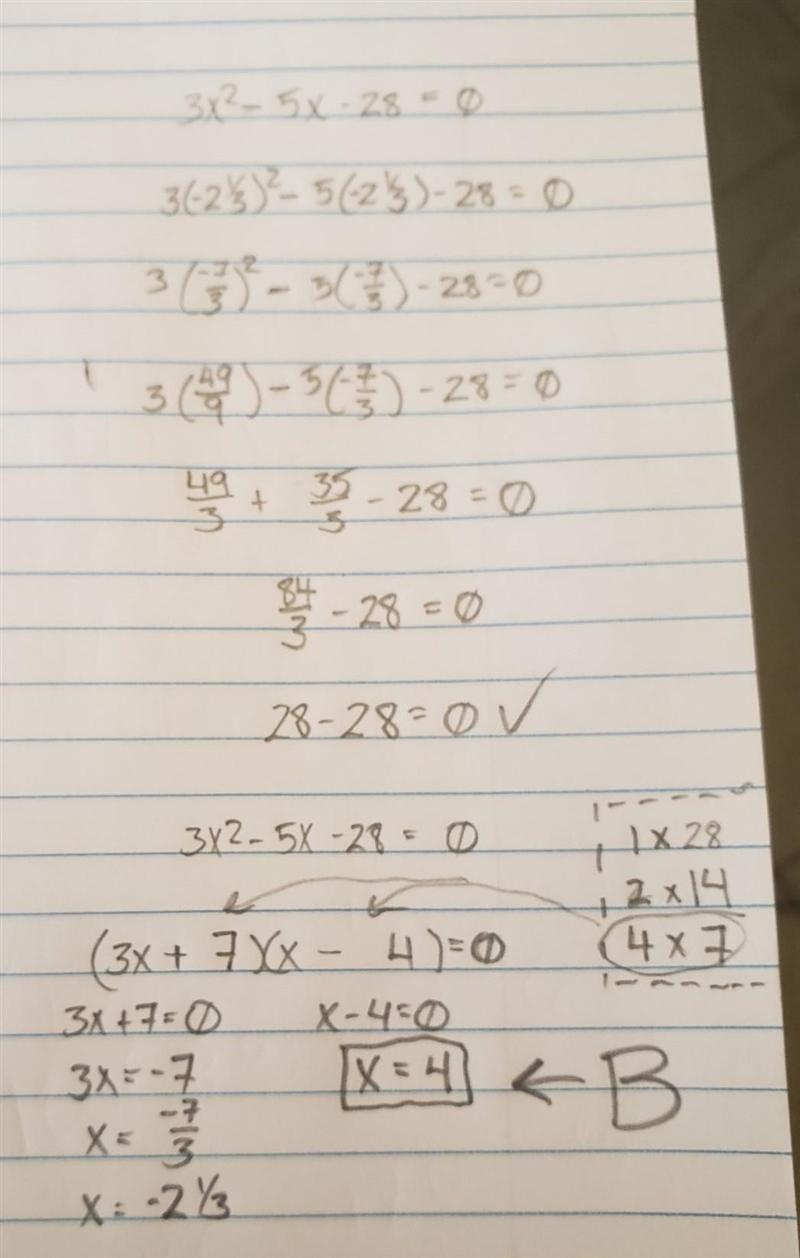 3x² - 5x - 28 = 0
3(-2⅓)² - 5(-2⅓) - 28 = 0
3(-7/3)² - 5(-7/3) - 28 = 0
3(49/9) - 5(-7/3) - 28 = 0
49/3 + 35/3 - 28 = 0
84/3 - 28 = 0
28 - 28 = 0 ✓
3x² - 5x - 28 = 0
1 x 28
2 x 14
4 x 7
(3x + 7)(x - 4) = 0
3x + 7 = 0 x - 4 = 0
3x = -7 x = 4 ← B
x = -7/3
x = -2⅓